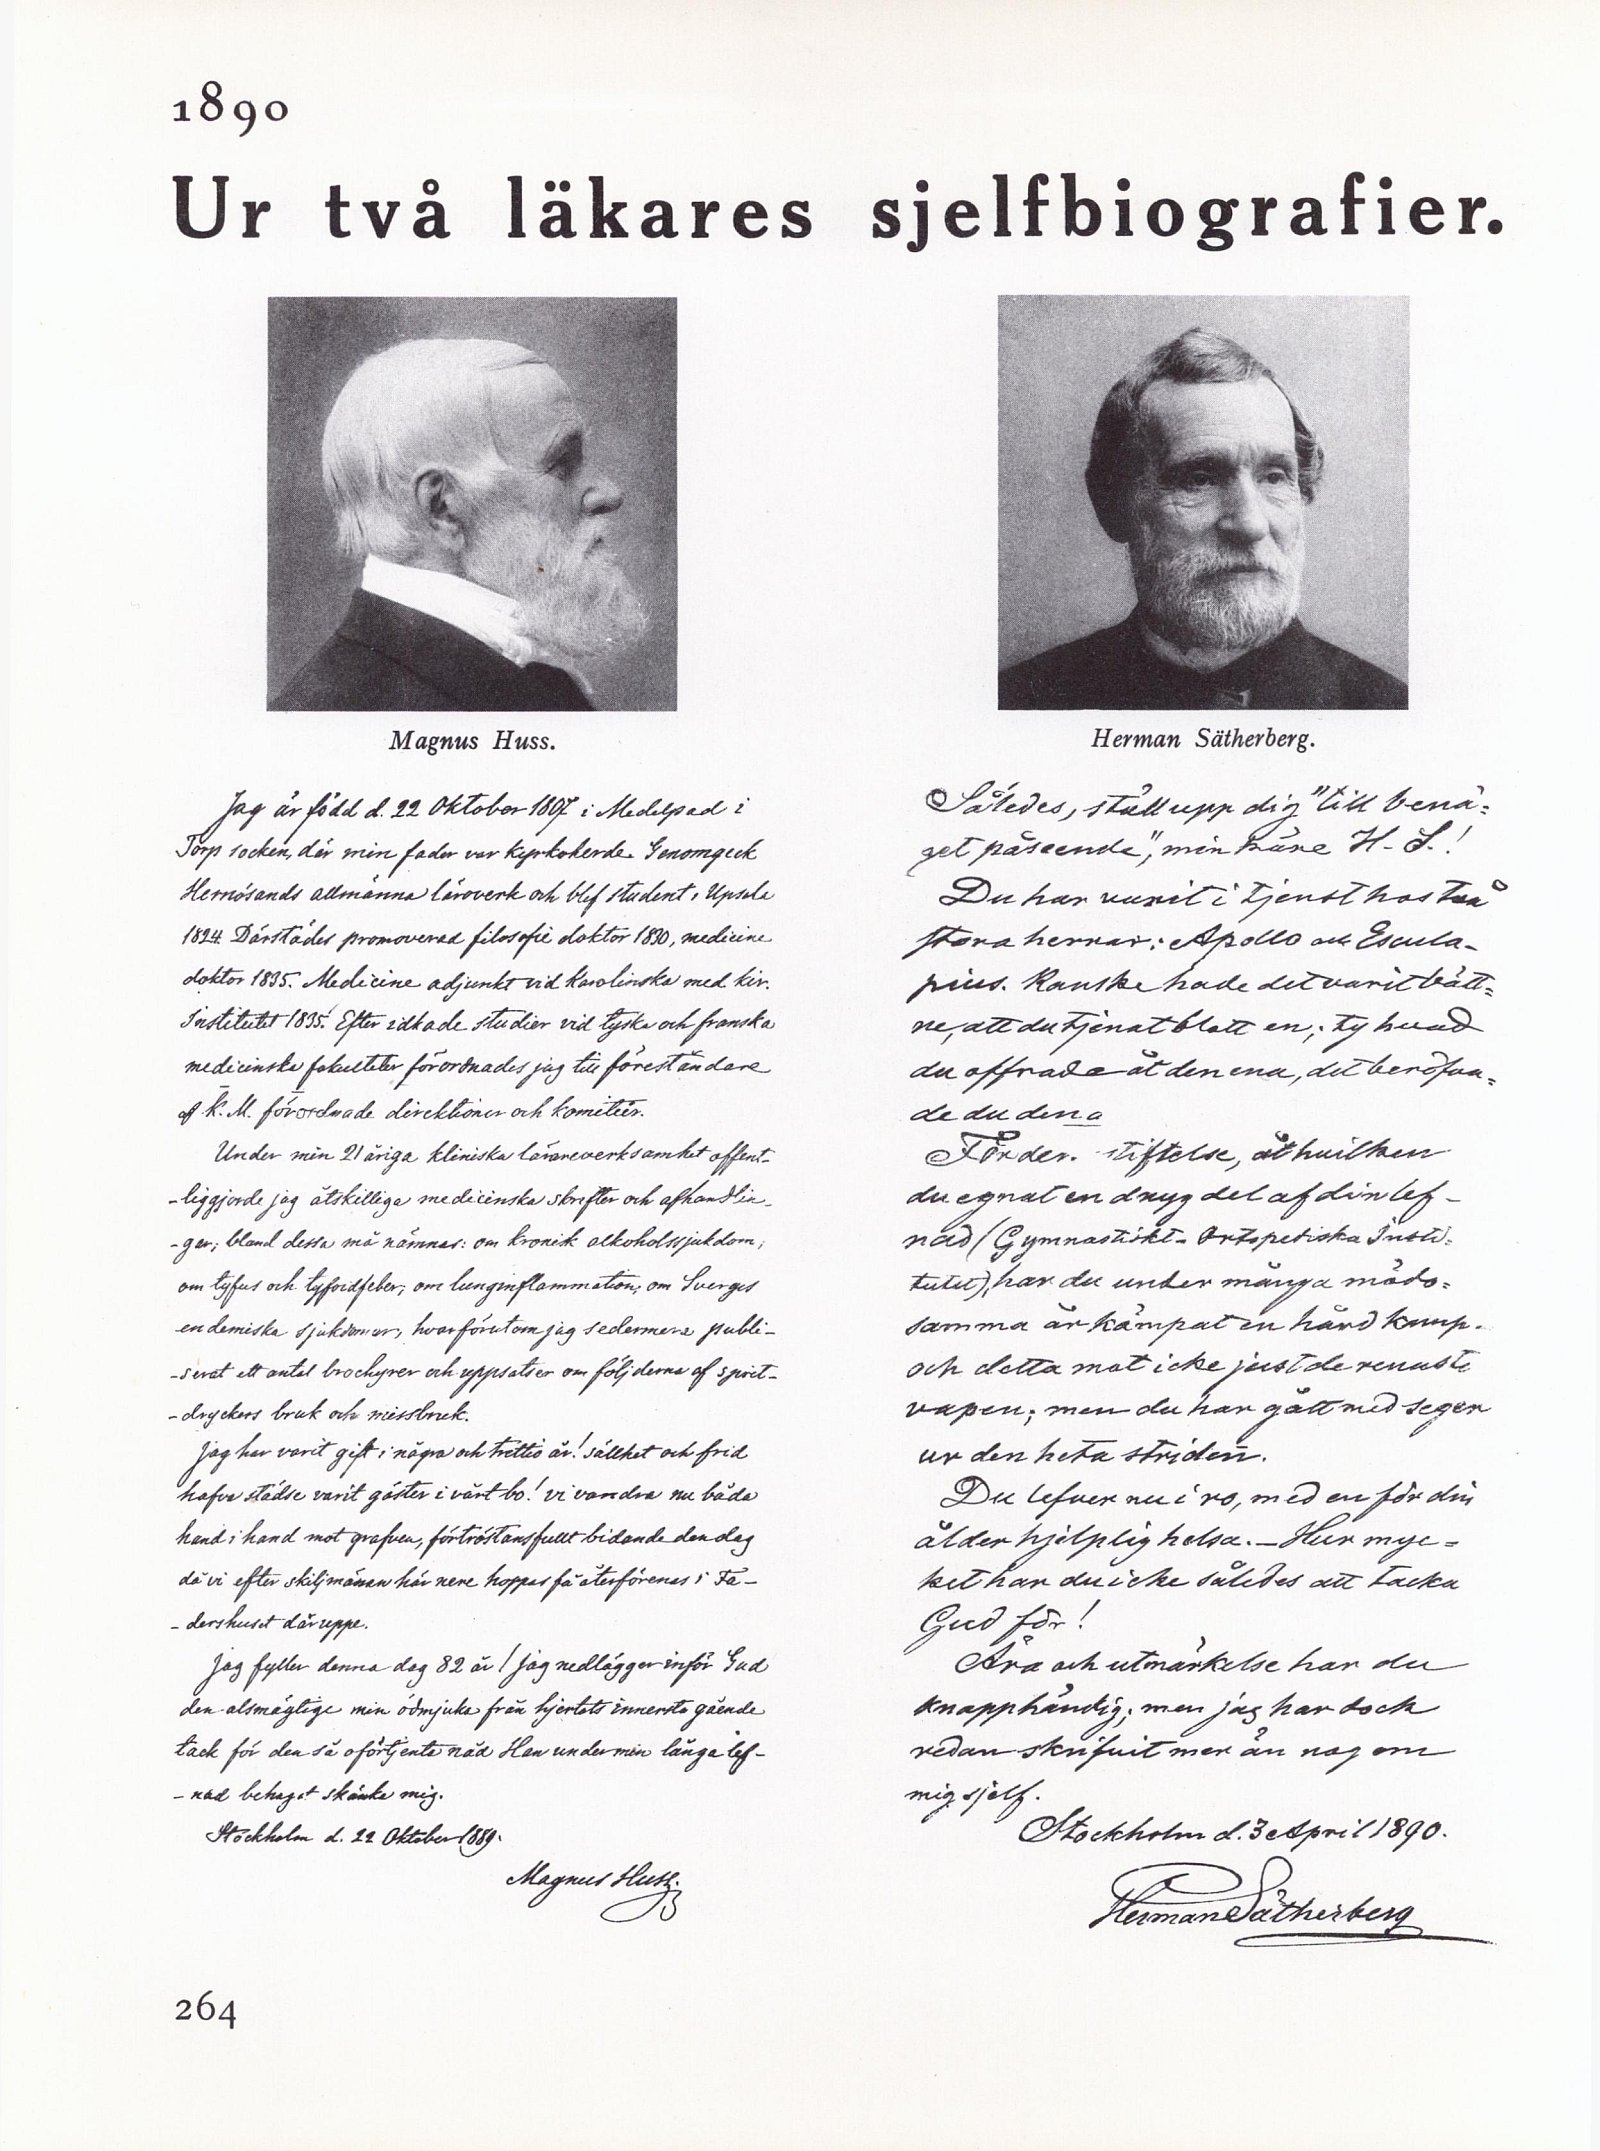 1890
Ur två läkares sjelfbiografier.
Magnus Huss.
Jag är född d. 22 Oktober 1807 i Medelpad i
Torp socken, där min fader var kyrkoherde. Genomgick
Hernösands allmänna läroverk och blef student i Upsala
1824. Därstädes promoverad filosofie doktor 1830, medicine
doktor 1835. Medicine adjunkt vid Karolinska med. kir.
Institutet 1835. Efter idkade studier vid tyska och franska
medicinska fakulteter förordnades jag till föreståndare
af K. M. förordnade direktioner och komitéer.
Under min 21 åriga kliniska lärareverksamhet offent-
-liggjorde jag åtskilliga medicinska skrifter och afhandlin-
-gar; bland dessa må nämnas: om kronisk alkoholssjukdom;
om tyfus och tyfoidfeber; om lunginflammation; om Sveriges
endemiska sjukdomar; hvarförutom jag sedermera publi-
-serat ett antal brochyrer och uppsatser om följderna af sprit-
-dryckers bruk och missbruk.
Jag har varit gift i några och trettio år! sällhet och frid
hafva städse varit gäster i vårt bo! vi vandra nu båda
hand i hand mot grafven, förtröstansfullt bidande den dag
då vi efter skiljmånan här nere hoppas få återförenas i Fa-
-dershuset däruppe.
Jag fyller denna dag 82 år! jag nedlägger inför Gud
den alsmägtige min ödmjuka från hjertats innersta gående
tack för den så oförtjenta nåd Han under min långa lef-
-nad behagat skänka mig.
Stockholm d. 22 Oktober 1889.
Magnus Huss.
Herman Sätherberg.
Således, ställ upp dig "till benä-
get påseende", min käre H. S.!
Du har varit i tjenst hos två
stora herrar: Apollo och Escula-
pius. Kanske hade det varit bätt-
re, att du tjenat blott en; ty hvad
du offrade åt den ena, det beröfva-
de du den a
För den stiftelse, åt hvilken
du egnat en dryg del af din lef-
nad (Gymnastiskt-Ortopediska Insti-
tutet), har du under många mödo-
samma år kämpat en hård kamp.
och detta mot icke just de renaste
vapen; men du har gått med seger
ur den heta striden.
Du lefver nu i ro, med en för din
ålder hjelplig helsa. – Hur myc-
ket har du icke således att tacka
Gud för!
Ära och utmärkelse har du
knapphändig; men jag har dock
redan skrifvit mer än nog om
mig sjelf.
Stockholm d. 3 April 1890.
Herman Sätherberg
264